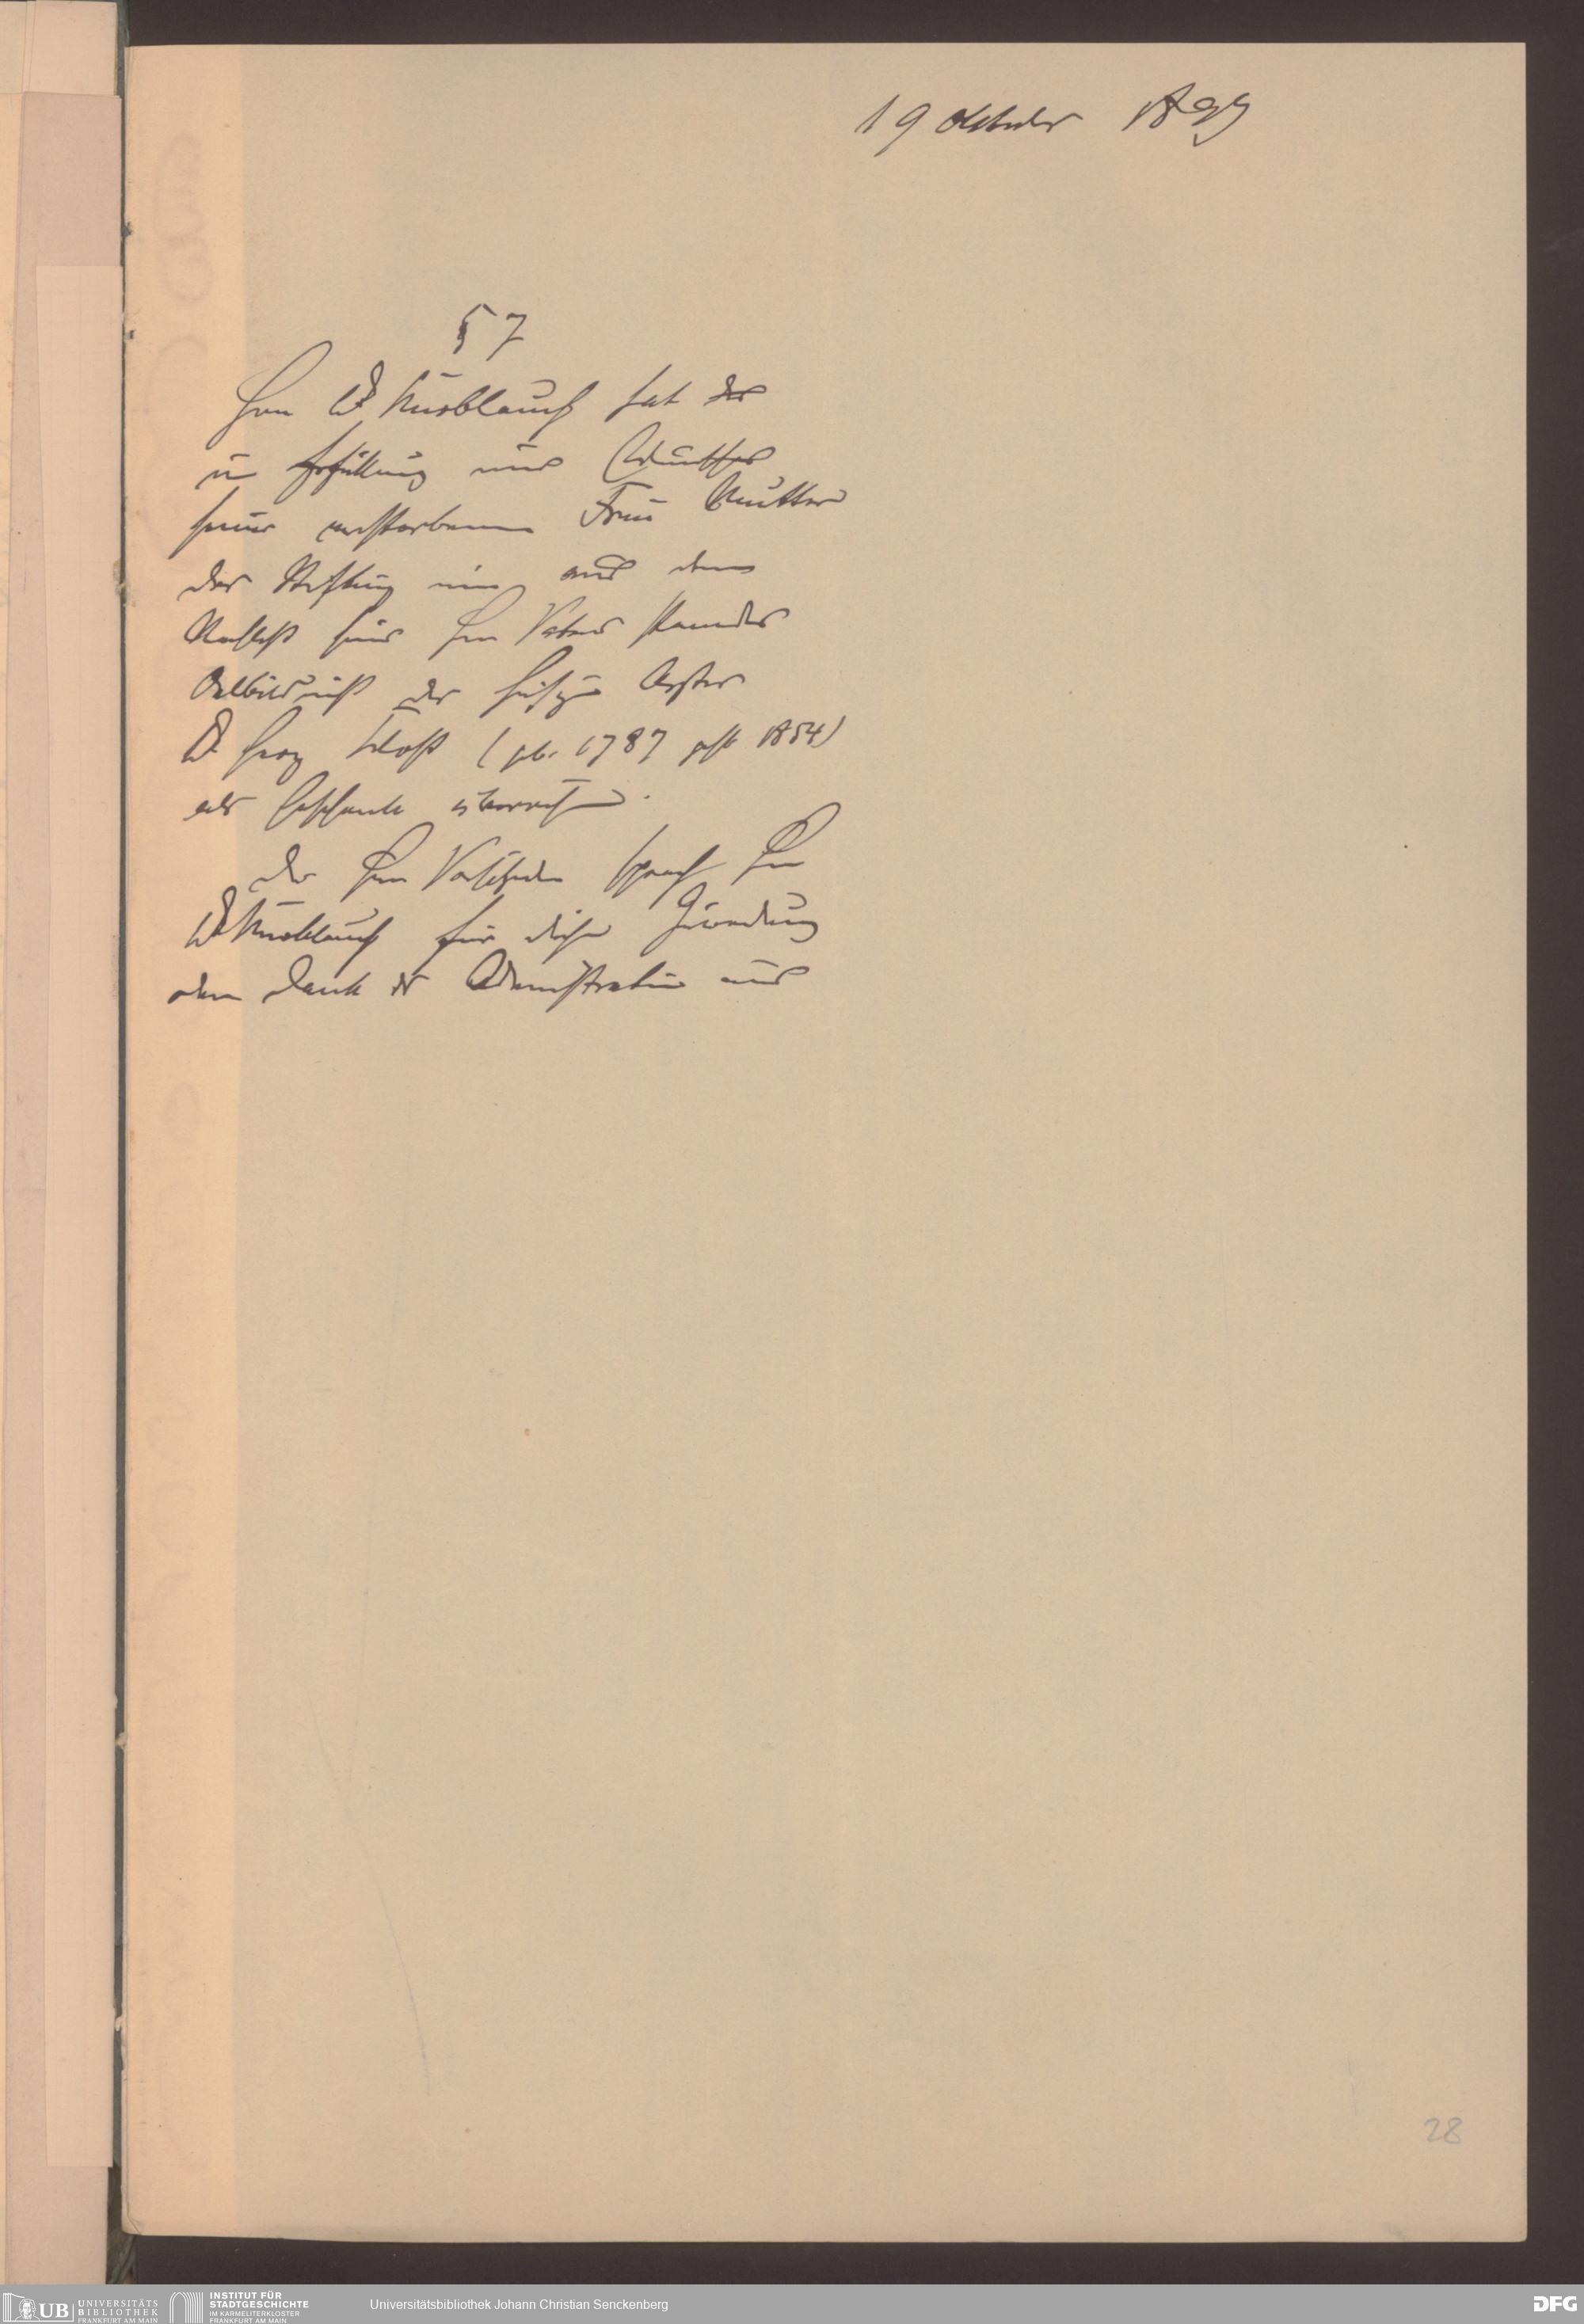 19 Oktober 1899
§ 7
Herr Dr Knoblauch hat der
in Erfüllung eines Wunsches
seiner verstorbenen Frau Mutter
der Stiftung ein aus dem
Nachlaß seines Herrn Vaters stammendes
Oelbildniß des hiesigen Arztes
Dr. Georg Kloß (geb. 1787 gest 1854)
als Geschenk überreicht.
Der Herr Vorsitzende sprach Herrn
Dr Knoblauch für diese Zuwendung
den Dank der Administration aus
28
UB UNIVERSITÄTS
BIBLIOTHEK
FRANKFURT AM MAIN
INSTITUT FÜR
STADTGESCHICHTE
IM KARMELITERKLOSTER
FRANKFURT AM MAIN
Universitätsbibliothek Johann Christian Senckenberg
DFG